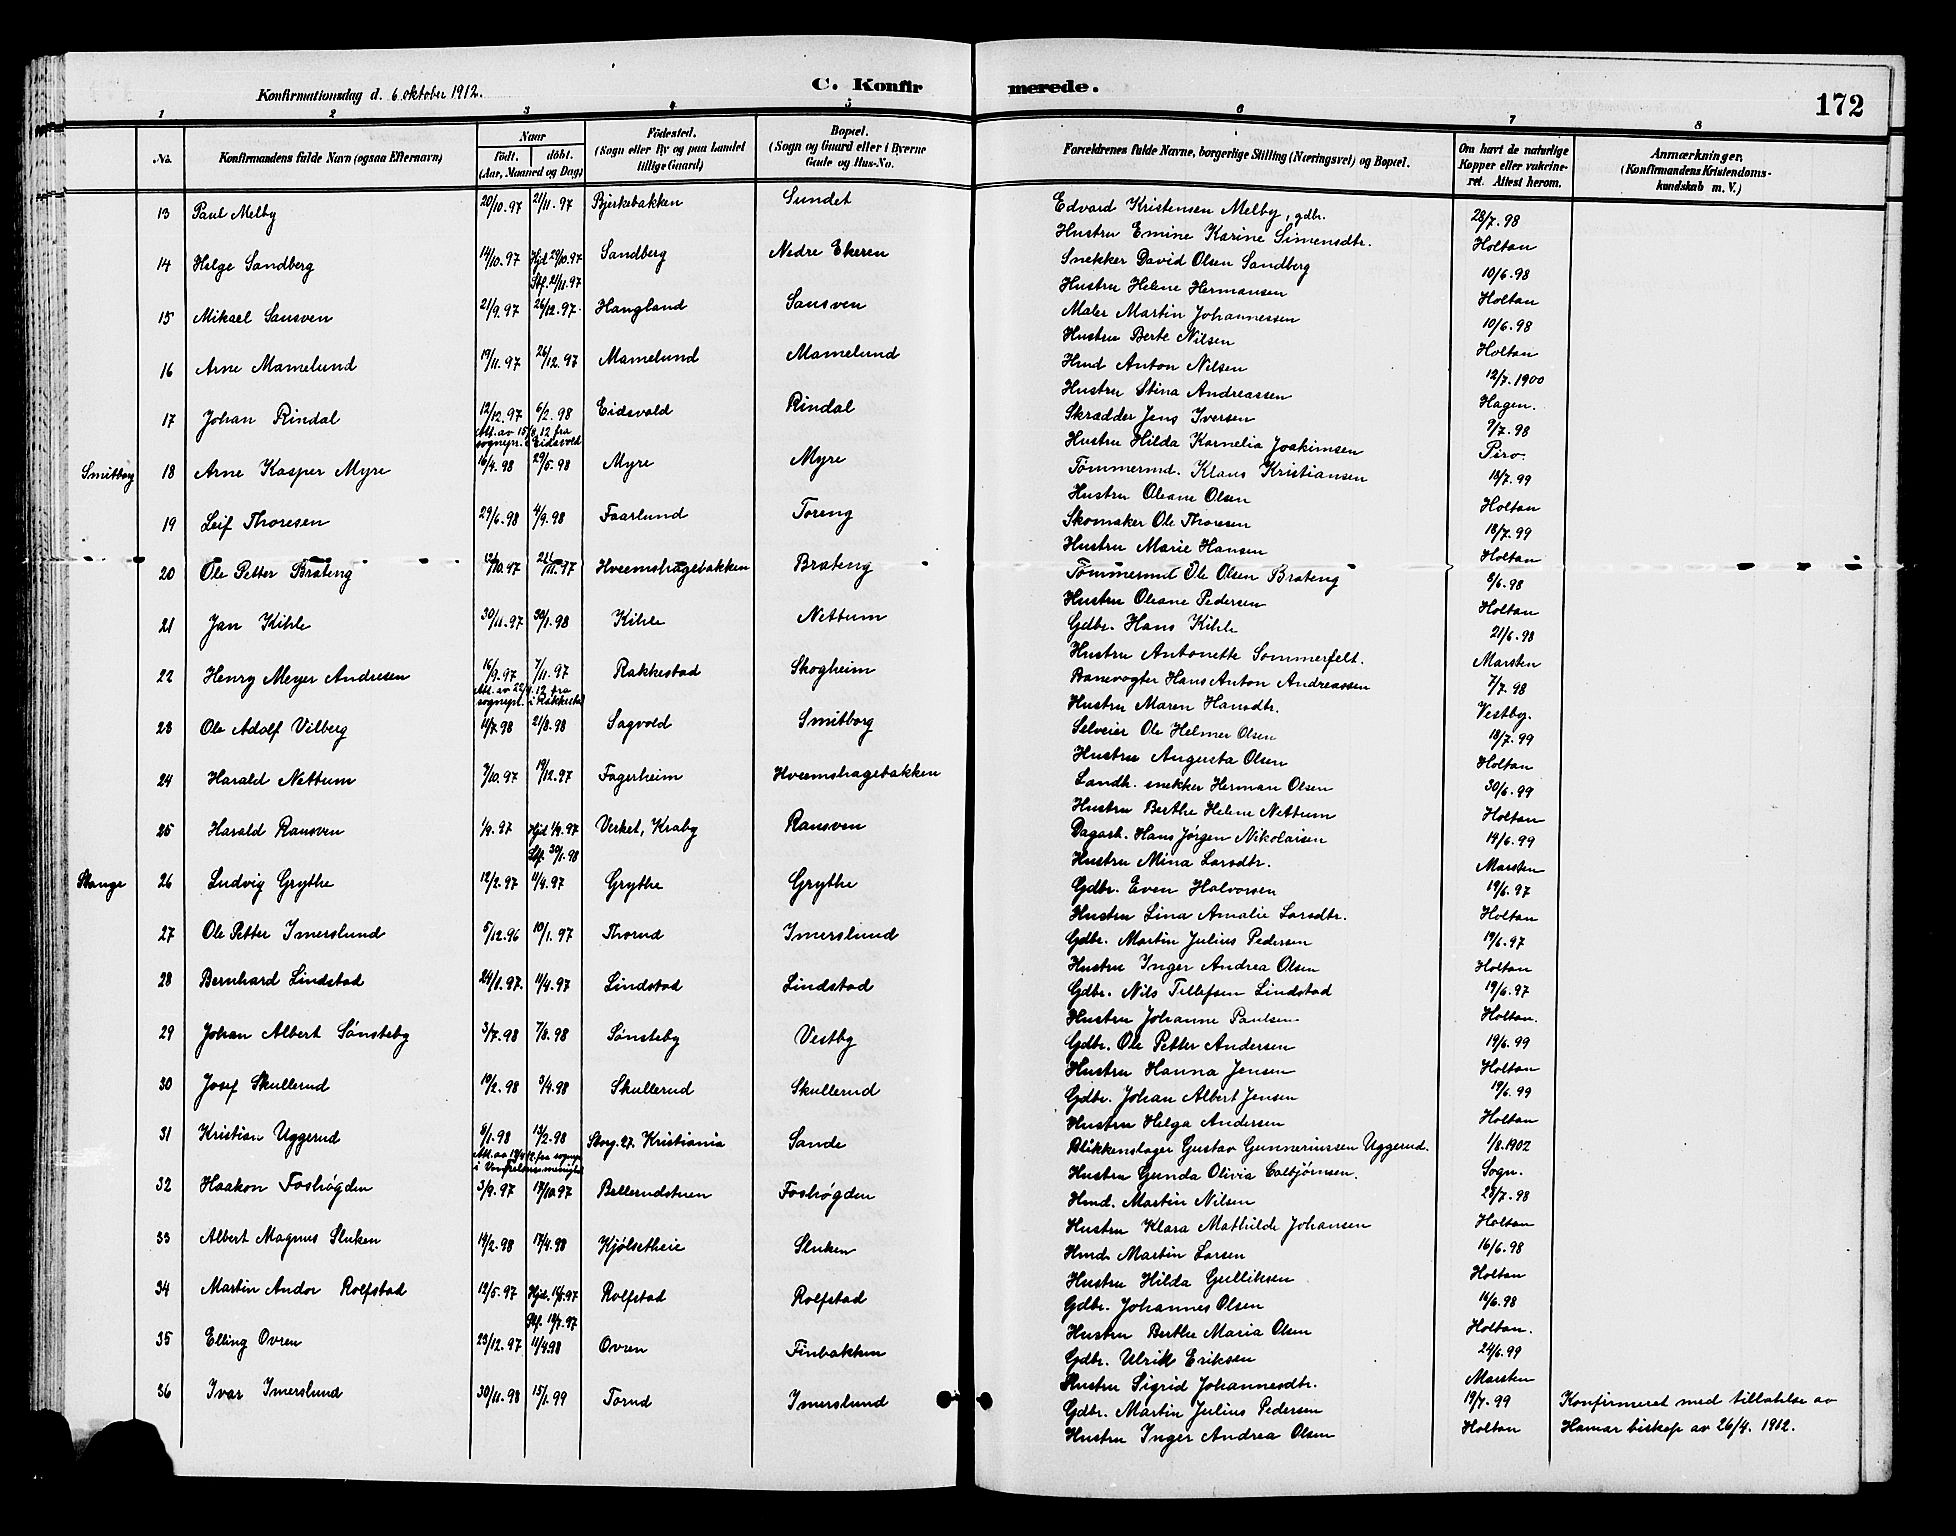 Konfirmationsdag d. 6 oktober 1912.
C. Konfir merede.
172
1 2 3 4 5 6 7 8
No.
Konfirmandens fulde Navn (ogsaa Efternavn)
Naar
født. døbt.
(Aar, Maaned og Dag)
Fødested.
(Sogn eller By og paa Landet
tillige Gaard)
Bopæl.
(Sogn og Gaard eller i Byerne
Gade og Hus-No.
Forældrenes fulde Navne, borgerlige Stilling (Næringsvei) og Bopæl.
Om havt de naturlige
Kopper eller vakcine-
ret. Attest herom.
Anmærkninger.
(Konfirmandens Kristendoms-
kundskab m. V.)
13 Paul Melby 20/10.97 21/11.97 Bjerkebakken Sundet Edvard Kristensen Melby, gdbr. 28/7.98
Hustru Emine Karine Simensdtr. Holtan
14 Helge Sandberg 14/10.97 Hjd 29/10.97 Sandberg Nedre Ekeren Snekker David Olsen Sandberg 10/6.98
Stf. 21/11.97 Hustru Helene Hermansen Holtan
15 Mikael Sansven 21/9.97 26/12.97 Hangland Sansven Maler Martin Johannessen 10/6.98
Hustru Berte Nilsen Holtan
16 Arne Mamelund 19/11.97 26/12.97 Mamelund Mamelund Hmd Anton Nilsen 12/7.1900
Hustru Stina Andreassen Hagen.
17 Johan Rindal 12/12.97 6/2.98 Eidsvold Rindal Skrædder Jens Iversen 9/7.98
Att. av 15/8.12 fra
sognepr. i Eidsvold Hustru Hilda Kornelia Joakimsen Piro.
Smitborg 18 Arne Kasper Myre 16/4.98 29/5.98 Myre Myre Tømmermd. Klaus Kristiansen 18/7.99
Hustru Oleane Olsen Holtan
19 Leif Thoresen 29/6.98 4/9.98 Faarlund Toreng Skomaker Ole Thoresen 18/7.99
Hustru Marie Hansen Holtan
20 Ole Petter Brateng 12/10.97 21/11.97 Hveemshagebakken Brateng Tømmermd Ole Olsen Brateng 8/6.98
Hustru Oleane Pedersen Holtan
21 Jan Kihle 30/11.97 30/1.98 Kihle Nettum Gdbr. Hans Kihle 21/6.98
Hustru Antonette Sommerfelt. Marsten
22 Henry Meyer Andresen 16/9.97 7/11.97 Rakkestad Skogheim Banevogter Hans Anton Andreassen 7/7.98
sognepr. i Rakkestad Hustru Maren Hansdtr. Vestby.
23 Ole Adolf Vilberg 14/7.98 21/8.98 Sagvold Smitborg Selveier Ole Helmer Olsen 18/7.99
Hustru Augusta Olsen Holtan
24 Harald Nettum 7/10.97 19/12.97 Fagerheim Hveemshagebakken Landh. snekker Herman Olsen 30/6.99
Hustru Berthe Helene Nettum Holtan
25 Harald Ransven 1/9.97 Hjd 1/9.97 Verket, Kraby Ransven Dagarb. Hans Jørgen Nikolaisen 14/6.99
Stf. 30/1.98 Hustru Mina Larsdtr. Marsten
Stange 26 Ludvig Grythe 12/2.97 11/4.97 Grythe Grythe Gdbr. Even Halvorsen 19/6.97
Hustru Lina Amalie Larsdtr. Holtan
27 Ole Petter Imerslund 5/12.96 10/1.97 Thorud Imerslund Gdbr. Martin Julius Pedersen 19/6.97
Hustru Inger Andrea Olsen Holtan
28 Bernhard Lindstad 24/1.97. 11/4.97 Lindstad Lindstad Gdbr. Nils Tillefsen Lindstad 19/6.97
Hustru Johanne Paulsen Holtan.
29 Johan Albert Sønsteby 3/7.98 7/8.98 Sønsteby Vestby Gdbr. Ole Petter Andersen 19/6.99
Hustru Hanna Jensen Holtan
30 Josef Skullerud 10/2.98 3/4.98 Skullerud Skullerud Gdbr. Johan Albert Jensen 19/6.99
Hustru Helga Andersen Holtan
31 Kristian Uggerud 8/1.98 13/2.98 Storg. 27. Kristiania Sande Blikkenslager Gustav Gunneriussen Uggerud. 1/8.1902
i Vor Frelsers menighet Hustru Gunda Olivia Colbjørnsen. Sogn.
32 Haakon Foshøgden 3/9.97 17/10.97 Bellerudstuen Foshøgden Hmd. Martin Nilsen 28/7.98
Hustru Klara Mathilde Johansen Holtan
33 Albert Magnus Sluken 19/2.98 17/4.98 Kjølsetheie Sluken Hmd. Martin Larsen 16/6.98
Hustru Hilda Gulliksen Holtan
34 Martin Andor Rolfstad 12/5.97 Rolfstad Rolfstad Gdbr. Johannes Olsen 16/6.98
Hustru Berthe Maria Olsen Holtan.
35 Elling Ovren 23/12.97 11/4.98 Ovren Finbakken Gdbr. Ulrik Eriksen 24/6.99
Hustru Sigrid Johannesdtr. Marsten
36 Ivar Imerslund 30/11.98 15/1.99 Torud Imerslund Gdbr. Martin Julius Pedersen 19/7.99 Konfirmeret med tillatelse av
Hustru Inger Andrea Olsen Holtan Hamar biskop av 26/4.1912.